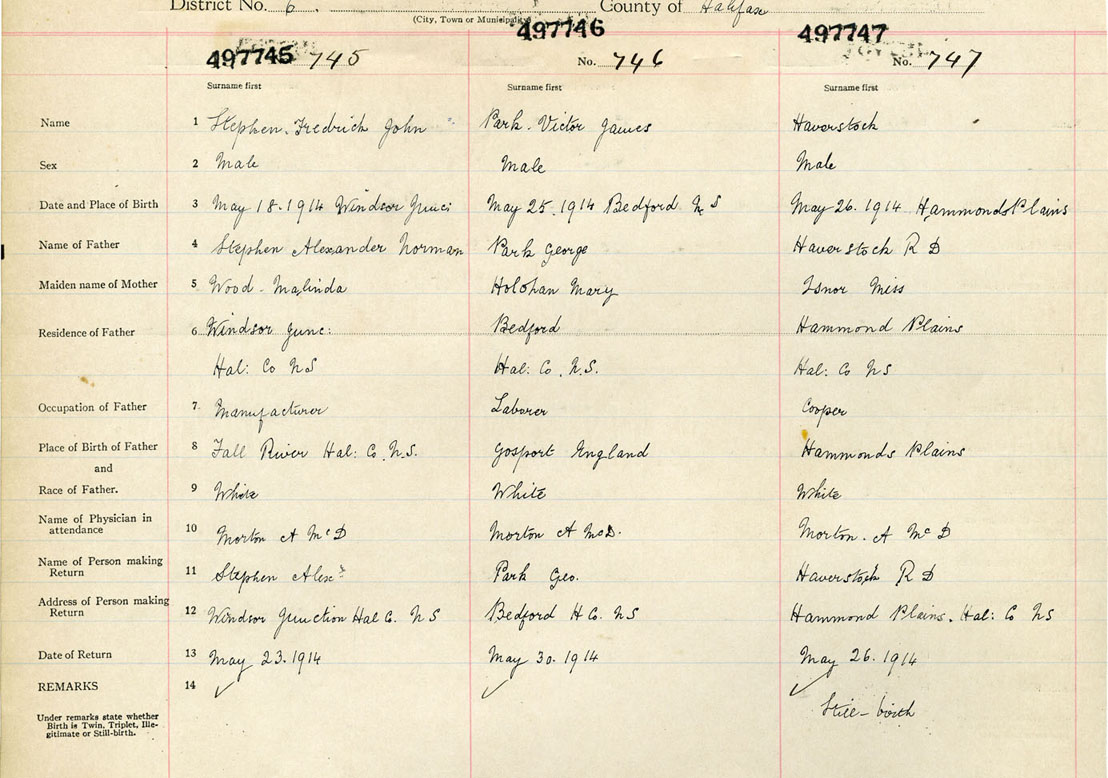 District No. 6. County of Halifax
(City, Town or Municipality)
497745 745
497746
No. 746
497747
No. 747
Surname first Surname first Surname first
Name 1 Stephen. Fredrick John Park. Victor James Haverstock
Sex 2 Male Male Male
Date and Place of Birth 3 May 18. 1914 Windsor Junc: May 25. 1914 Bedford N S May 26. 1914 Hammonds Plains
Name of Father 4 Stephen Alexander Norman Park George Haverstock R D
Maiden name of Mother 5 Wood. Malinda Holohan Mary Isnor Miss
Residence of Father 6 Windsor Junc: Bedford Hammond Plains
Hal: Co N S Hal: Co. N.S. Hal: Co N S
Occupation of Father 7. Manufacturer Laborer Cooper
Place of Birth of Father 8 Fall River Hal: Co. N.S. Gosport England Hammonds Plains
and
Race of Father. 9 White White White
Name of Physician in
attendance 10 Morton A McD Morton A McD. Morton. A Mc D
Name of Person making
Return 11 Stephen Alexr Park Geo. Haverstock R D
Address of Person making
Return 12 Windsor Junction Hal C. N S Bedford H C. N S Hammond Plains. Hal: Co N S
Date of Return 13 May 23. 1914 May 30. 1914 May 26. 1914
REMARKS 14 ✓ ✓ ✓
Still-birth
Under remarks state whether
Birth is Twin, Triplet, Ille-
gitimate or Still-birth.